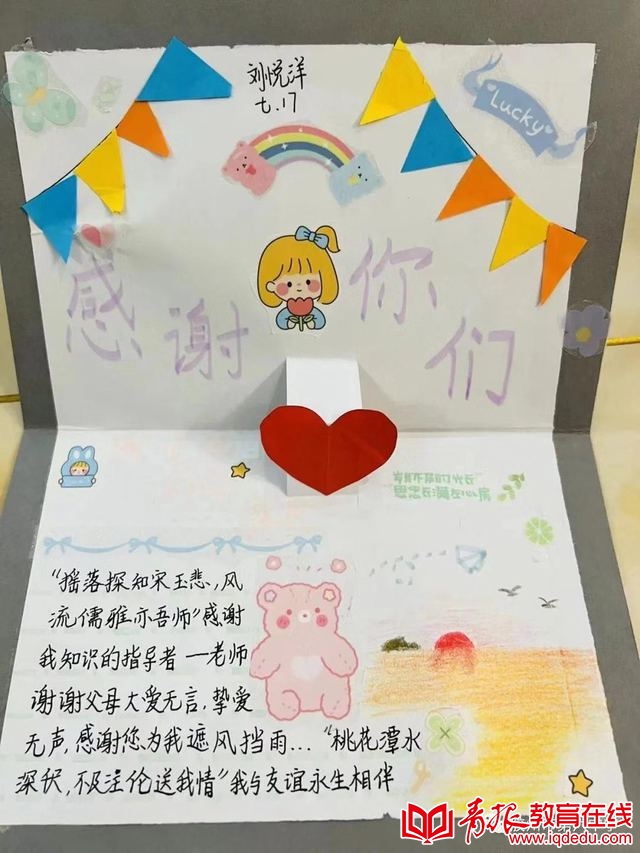 刘悦洋
七.17
Lucky
感谢你们
思念长满左心房
“摇落探知宋玉悲,风
流儒雅亦吾师”感谢
我知识的指导者 —老师
谢谢父母大爱无言,挚爱
无声,感谢您为我遮风挡雨...“桃花潭水
深,不及汪伦送我情”我与友谊永生相伴
青报教育在线
www.iqdedu.com